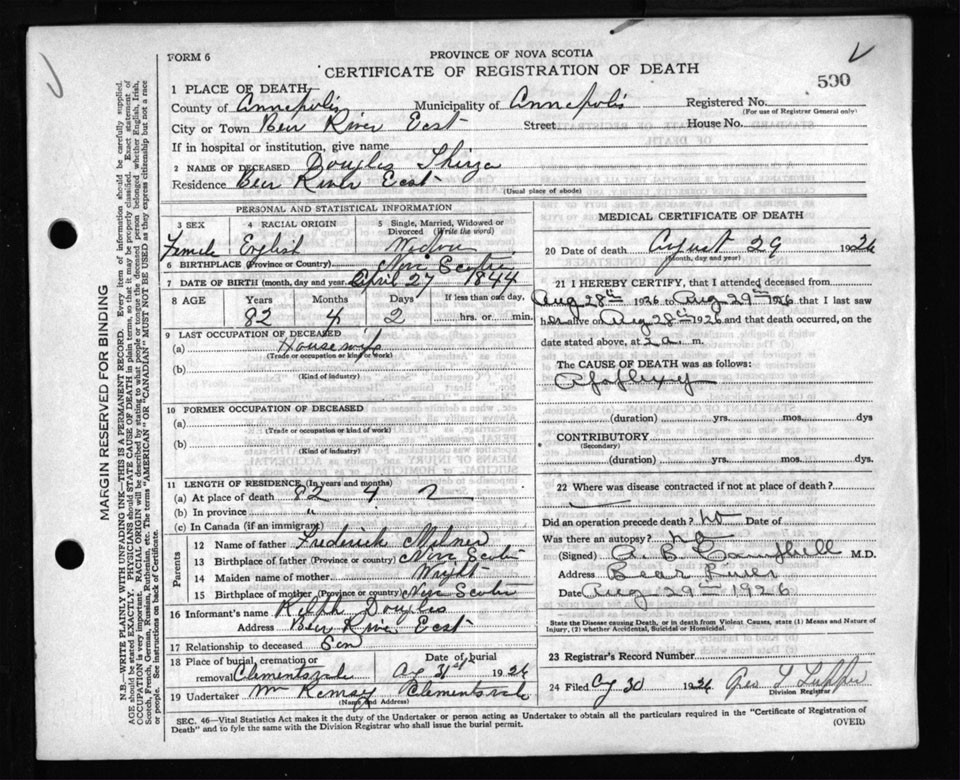 FORM 6
PROVINCE OF NOVA SCOTIA
CERTIFICATE OF REGISTRATION OF DEATH
590
1 PLACE OF DEATH
County of Annapolis Municipality of Annapolis Registered No.
(For use of Registrar General only)
City or Town Bear River East Street House No.
If in hospital or institution, give name
2 NAME OF DECEASED Douglas Thirza
Residence Bear River East
(Usual place of abode)
PERSONAL AND STATISTICAL INFORMATION
3 SEX 4 RACIAL ORIGIN 5 Single, Married, Widowed or Divorced (Write the word)
Female English Widow
6 BIRTHPLACE (Province or Country) Nova Scotia
7 DATE OF BIRTH (month, day and year) April 27 1844
8 AGE Years Months Days If less than one day,
82 4 2 hrs. or min.
9 LAST OCCUPATION OF DECEASED
(a) Housewife
(Trade or occupation or kind of work)
(b)
(Kind of industry)
10 FORMER OCCUPATION OF DECEASED
(a)
(Trade or occupation or kind of work)
(b)
(Kind of industry)
11 LENGTH OF RESIDENCE (In years and months)
(a) At place of death 82 4 2
(b) In province "
(c) In Canada (if an immigrant)
Parents
12 Name of father Frederick Milner
13 Birthplace of father (Province or country) Nova Scotia
14 Maiden name of mother Wright
15 Birthplace of mother (Province or country) Nova Scotia
16 Informant's name Ralph Douglas
Address Bear River East
17 Relationship to deceased Son
18 Place of burial, cremation or removal Clementsvale Date of burial Ag 31st 1926
19 Undertaker Wm Ramsay Clementsvale
(Name and Address)
MEDICAL CERTIFICATE OF DEATH
20 Date of death August 29 1926
(Month, day and year)
21 I HEREBY CERTIFY, that I attended deceased from
Aug 28th 1926 to Aug 29th 1926 that I last saw
her alive on Aug 28th 1926 and that death occurred, on
the date stated above, at 2 a. m.
The CAUSE OF DEATH was as follows:
Apoplexy
(duration) yrs. mos. dys
CONTRIBUTORY
(Secondary)
(duration) yrs. mos. dys.
22 Where was disease contracted if not at place of death?
Did an operation precede death? no Date of
Was there an autopsy? no
(Signed) A. B. Campbell M.D.
Address Bear River
Date Aug 29th 1926
State the Disease causing Death, or in death from Violent Causes, state (1) Means and Nature of
Injury, (2) whether Accidental, Suicidal or Homicidal.
23 Registrar's Record Number
24 Filed Ag 30 1926 Tupper
Division Registrar
SEC. 46—Vital Statistics Act makes it the duty of the Undertaker or person acting as Undertaker to obtain all the particulars required in the "Certificate of Registration of
Death" and to fyle the same with the Division Registrar who shall issue the burial permit.
(OVER)
MARGIN RESERVED FOR BINDING
N.B.—WRITE PLAINLY WITH UNFADING INK—THIS IS A PERMANENT RECORD. Every item of information should be carefully supplied.
AGE should be stated EXACTLY. PHYSICIANS should STATE CAUSE OF DEATH in plain terms, so that it may be properly classified. Exact statement of
OCCUPATION is very important. RACIAL ORIGIN will be described by stating to what people or tongue the deceased person belonged whether English, Irish,
Scotch, French, German, Russian, Ruthenian, etc. The terms "AMERICAN" OR "CANADIAN" MUST NOT BE USED as they express citizenship but not a race
or people. See instructions on back of Certificate.